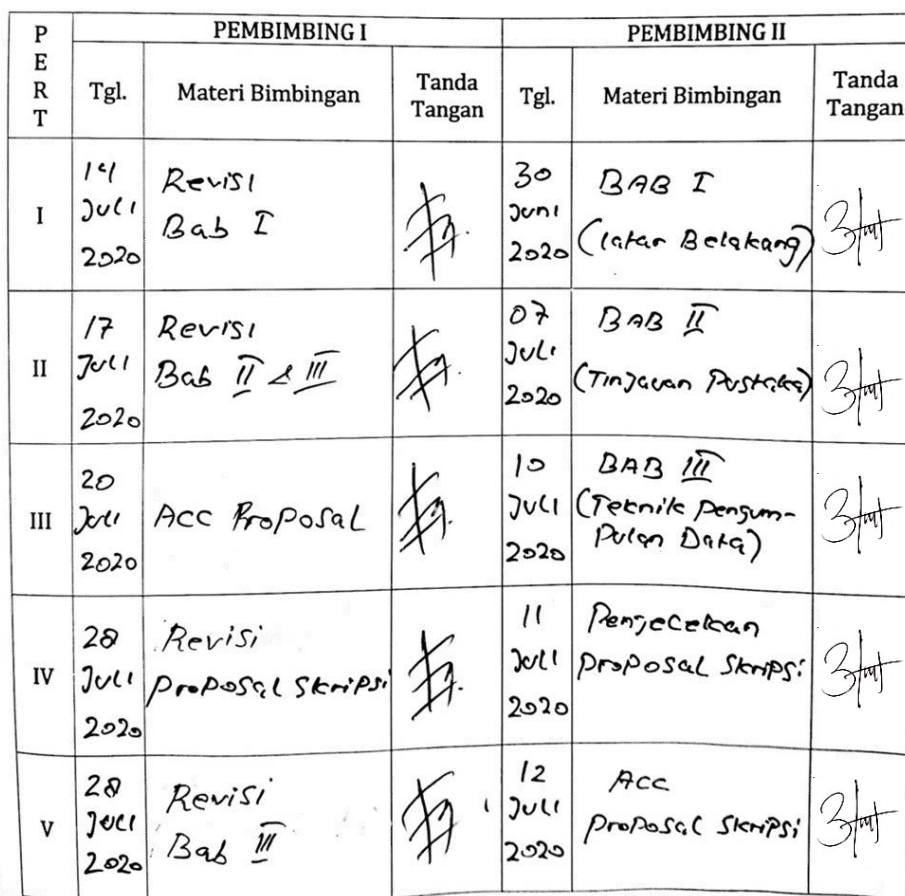 PERT
PEMBIMBING I
PEMBIMBING II
Tgl.
Materi Bimbingan
Tanda
Tangan
Tgl.
Materi Bimbingan
Tanda
Tangan
I
14
Juli
2020
Revisi
Bab I
30
Juni
2020
BAB I
(latar Belakang)
II
17
Juli
2020
Revisi
Bab II & III
07
Juli
2020
BAB II
(Tinjauan Pustaka)
III
20
Juli
2020
Acc Proposal
10
Juli
2020
BAB III
(Teknik Pengum-
Pulan Data)
IV
28
Juli
2020
Revisi
Proposal Skripsi
11
Juli
2020
Pengecekan
Proposal Skripsi
V
28
Juli
2020
Revisi
Bab III
12
Juli
2020
Acc
Proposal Skripsi